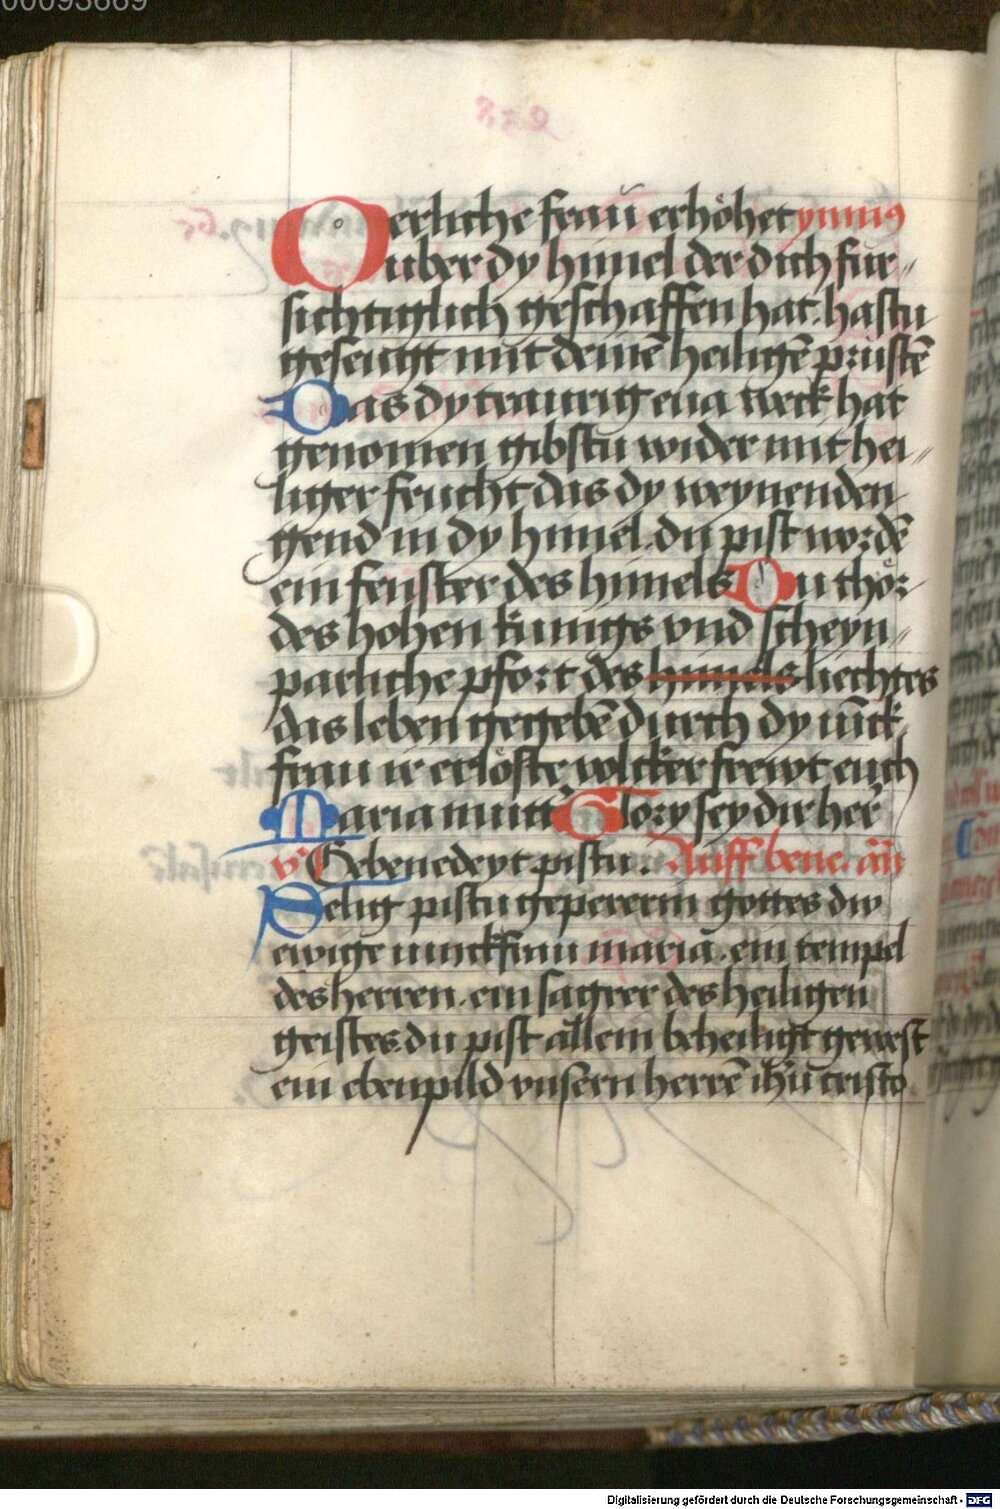 00093669
Oerliche frau erhöhet ymnus
uber dy himel der dich für-
sichtiglich geschaffen hat. hastu
geseugt mit deinē heiligē prustē
Das dy traurig eua weck hat
genomen gibstu wider mit hei-
liger frucht das dy weynenden
gend in dy himel. du pist wordē
ein fenster des himels Du thör
des hohen kunigs vnd scheyn-
parliche pfort des himels liechtes
das leben gegebē durch dy iūck
frau ir erlöste völcker frewt euch
Maria mutt Glory sey dir her
v Gebenedeyt pistu. Auff bene. an
Selig pistu gepererin gottes dw
ewige iunckfrau maria. ein tempel
des herren. ein sagrer des heiligen
geistes du pist allein beheiligt gewest
ein ebenpild vnsern herrē ihū cristo
Digitalisierung gefördert durch die Deutsche Forschungsgemeinschaft - DFG